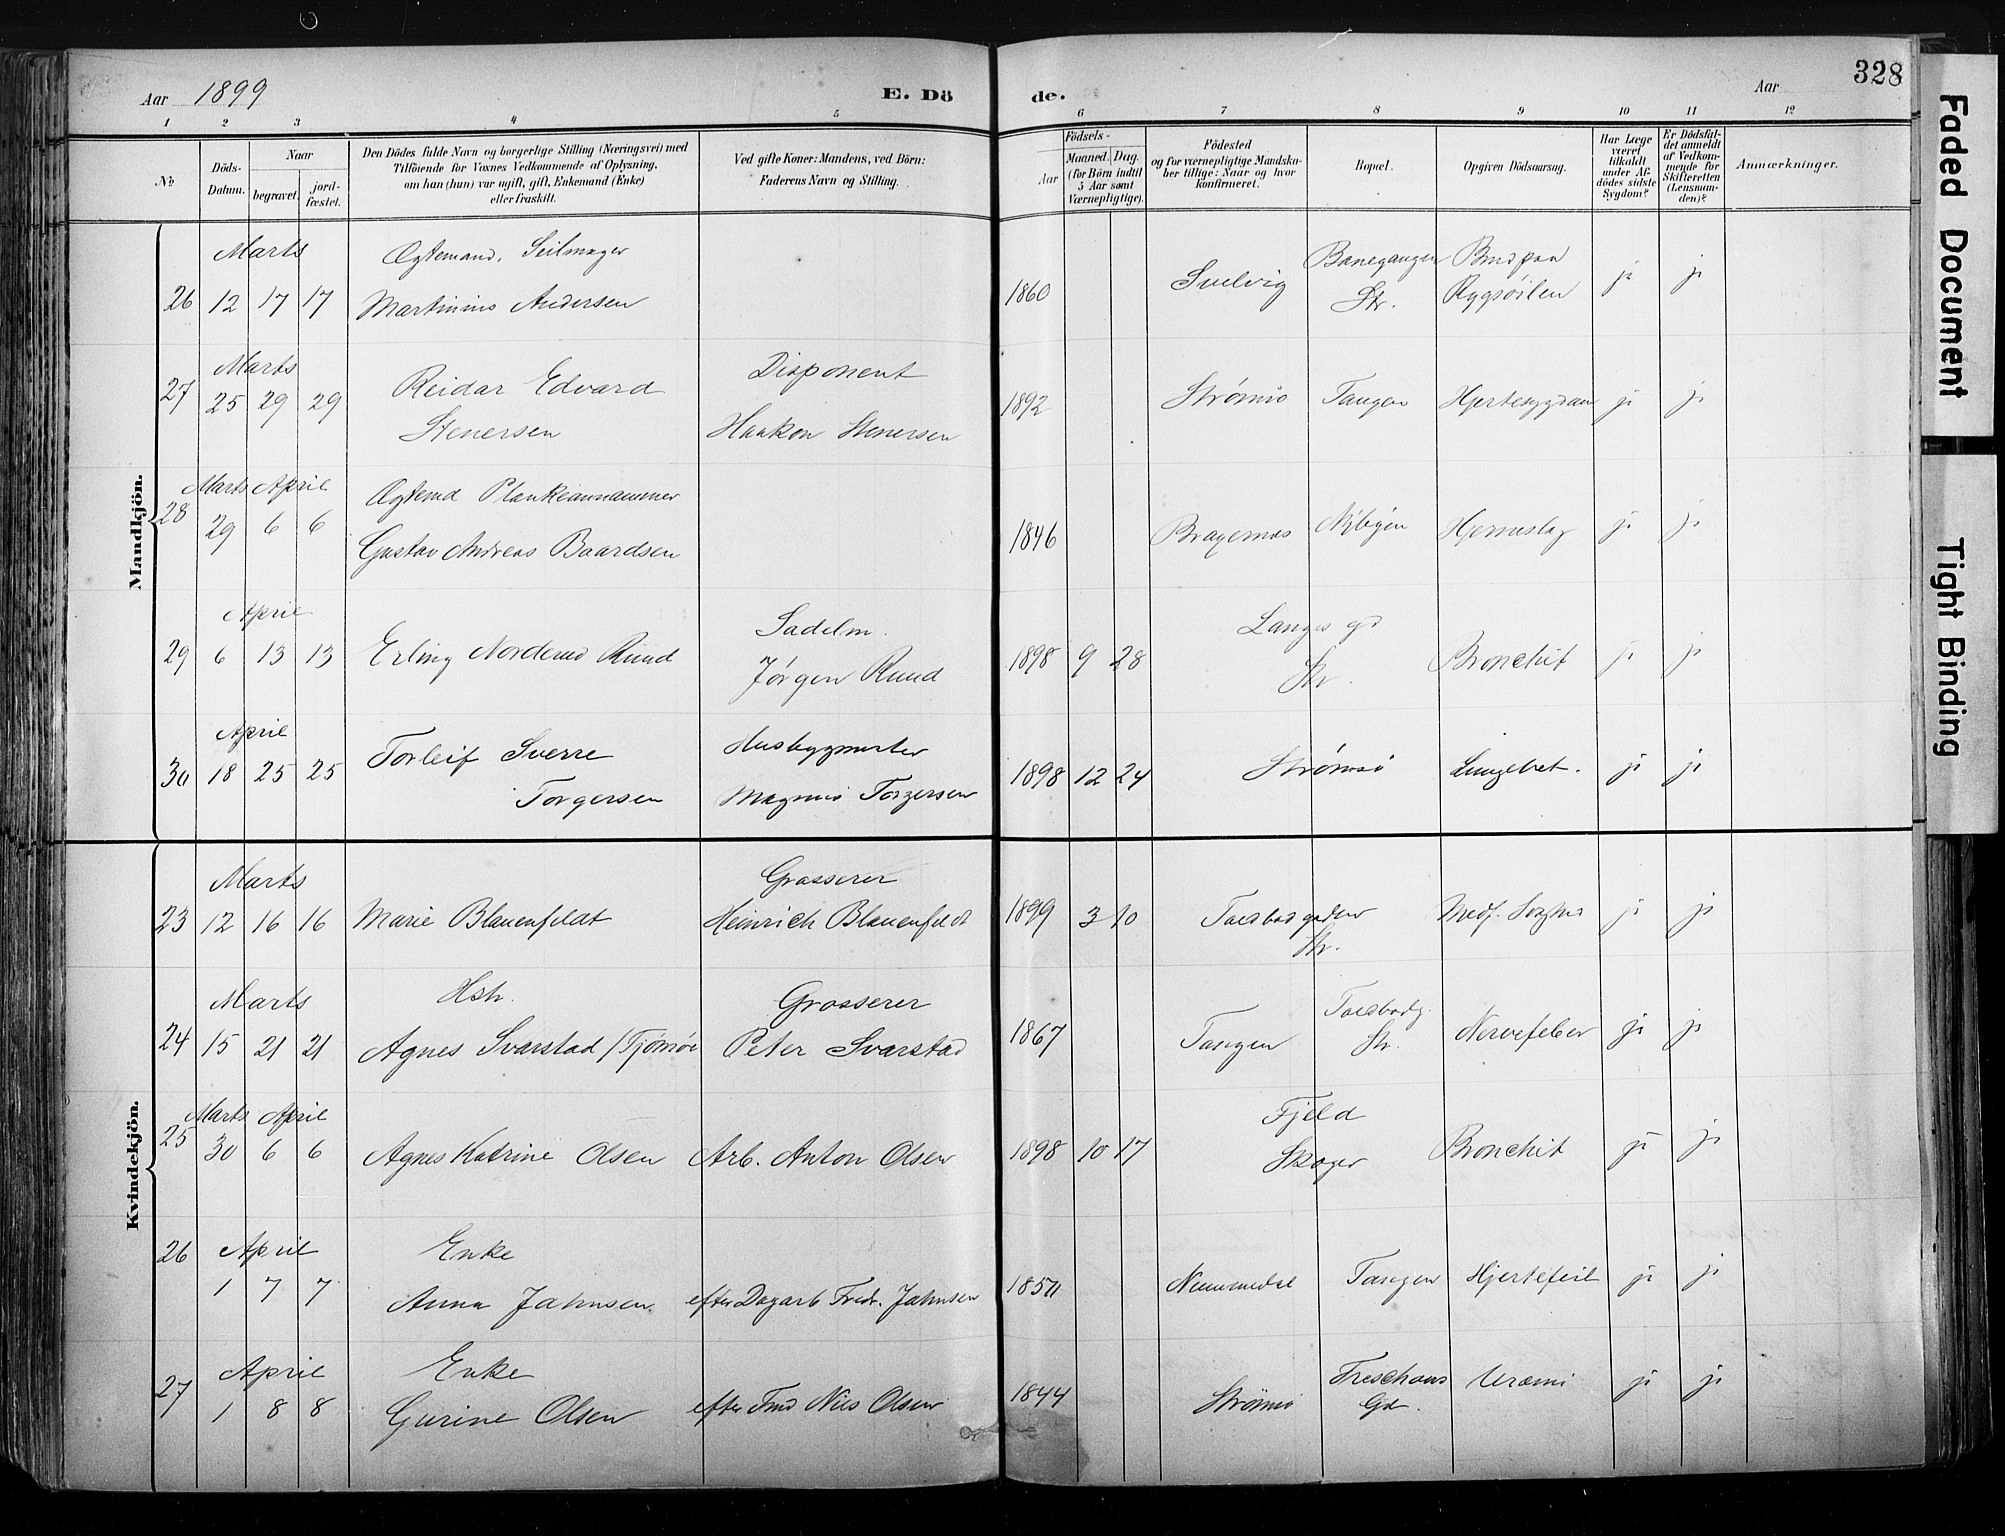 Aar 1899 E. Dö de. Aar 328
1 2 3 4 5 6 7 8 9 10 11 12
No Döds-Datum. Naar begravet. jord-fæstet. Den Dödes fulde Navn og borgerlige Stilling (Næringsvei) med Tilföiende for Voxnes Vedkommende af Oplysning, om han (hun) var ugift, gift, Enkemand (Enke) eller fraskilt. Ved gifte Koner: Mandens, ved Börn: Faderens Navn og Stilling. Födsels- Aar Maaned. Dag. (for Börn indtil 5 Aar samt Værnepligtige). Födested og for værnepligtige Mandskaber tillige: Naar og hvor konfirmeret. Bopæl. Opgiven Dödsaarsag. Har Læge været tilkaldt under Afdödes sidste Sygdom? Er Dödsfaldet anmeldt af Vedkommende for Skifteretten (Lensmanden)? Anmærkninger.
Mandkjön.
Marts Ægtemand. Seilmager Banegangen Brud paa
26 12 17 17 Martinius Andersen 1860 Svelvig Str. Rygsöilen ja ja
Marts Reidar Edvard Disponent
27 25 29 29 Stenersen Haakon Stenersen 1892 Strömsö Tangen Hjertesygdom ja ja
Marts April Ægtemd Plankeannammer
28 29 6 6 Gustav Andreas Baardsen 1846 Bragernæs Nybyen Hjerneslag ja ja
April Sadelm. Langes gd
29 6 13 13 Erling Nordemo Ruud Jørgen Ruud 1898 9 28 Str. Bronchit ja ja
April Torleif Sverre Husbygmester
30 18 25 25 Torgersen Magnus Torgersen 1898 12 24 Strømsö Lungebet. ja ja
Kvindekjön.
Marts Grosserer
23 12 16 16 Marie Blauenfeldt Heinrich Blauenfeldt 1899 3 10 Toldbodgaden Str. Medf. ja ja
Marts Hstr. Grosserer Toldbodg.
24 15 21 21 Agnes Svarstad f Tjömöe Peter Svarstad 1867 Tangen Str. Nervefeber ja ja
Marts April Fjeld
25 30 6 6 Agnes Katrine Olsen Arb. Anton Olsen 1898 10 17 Skoger Bronchit ja ja
April Enke
26 1 7 7 Anna Jahnsen efter Dagarb Fredr. Jahnsen Nummedal Tangen Hjertefeil ja ja
April Enke
27 1 8 8 Gurine Olsen efter Nils Olsen 1844 Strömsö Treschows Gd. Uræmi ja ja
Faded Document
Tight Binding